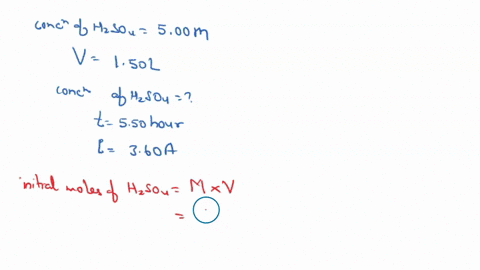 concⁿ of H₂SO₄ = 5.00M
V = 1.50L
concⁿ of H₂SO₄ = ?
t = 5.50 hour
I = 3.60A
initial moles of H₂SO₄ = M × V
=